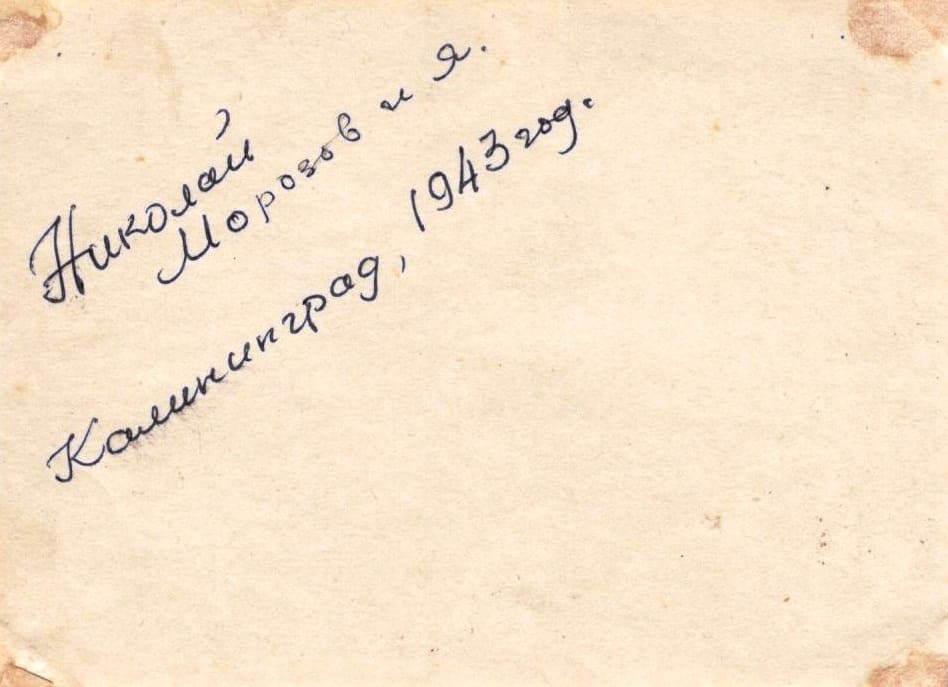 Николай
Морозов и я.
Калининград, 1943 год.